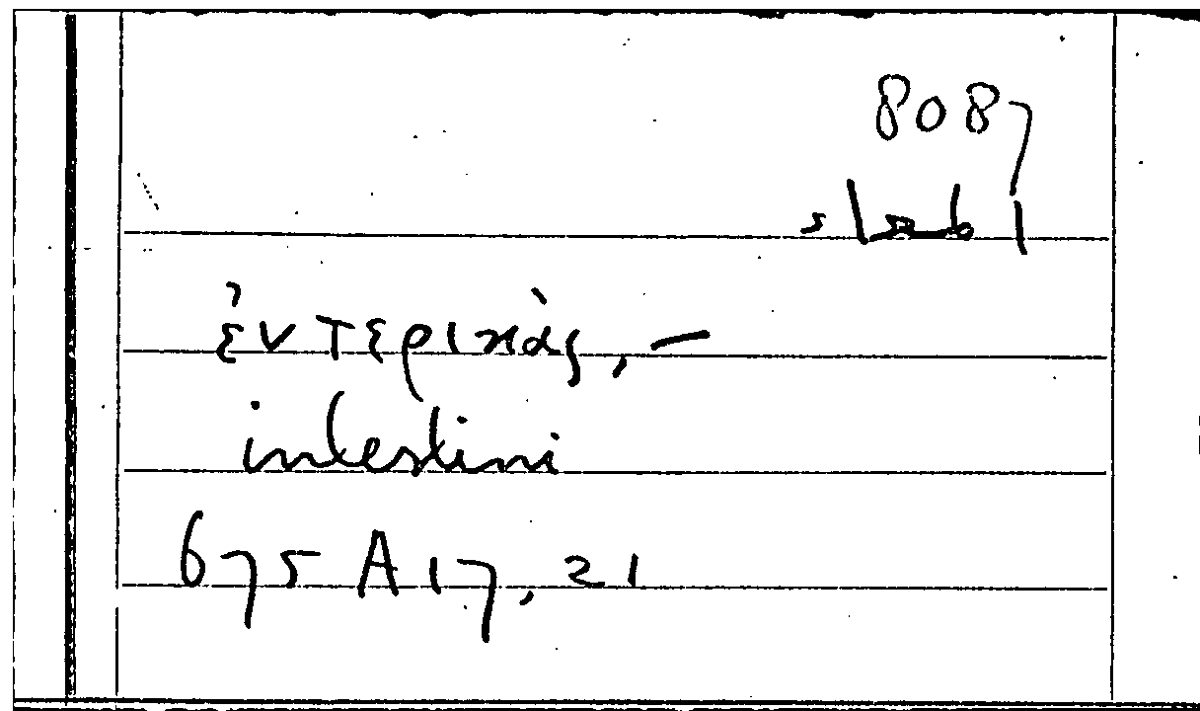 8087
ἐντερικὰς, —
intestini
675 A 17, 21